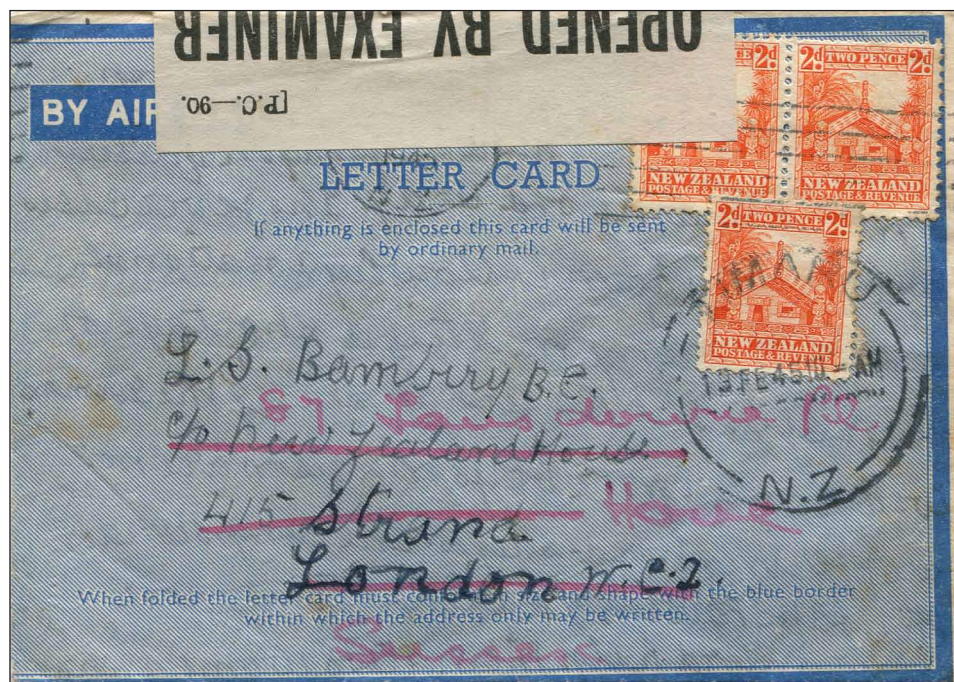 OPENED BY EXAMINER
[P.C.—90.
BY AIR
LETTER CARD
If anything is enclosed this card will be sent
by ordinary mail.
2d TWO PENCE 2d
NEW ZEALAND
POSTAGE & REVENUE
2d TWO PENCE 2d
NEW ZEALAND
POSTAGE & REVENUE
2d TWO PENCE 2d
NEW ZEALAND
POSTAGE & REVENUE
13 FE 45 10 - AM
N.Z
L. S. Bambury B.E.
87 Lansdowne Pl
c/o New Zealand House
415 Strand
Hove
London W.C.2.
When folded the letter card must conform in size and shape with the blue border
within which the address only may be written.
Sussex